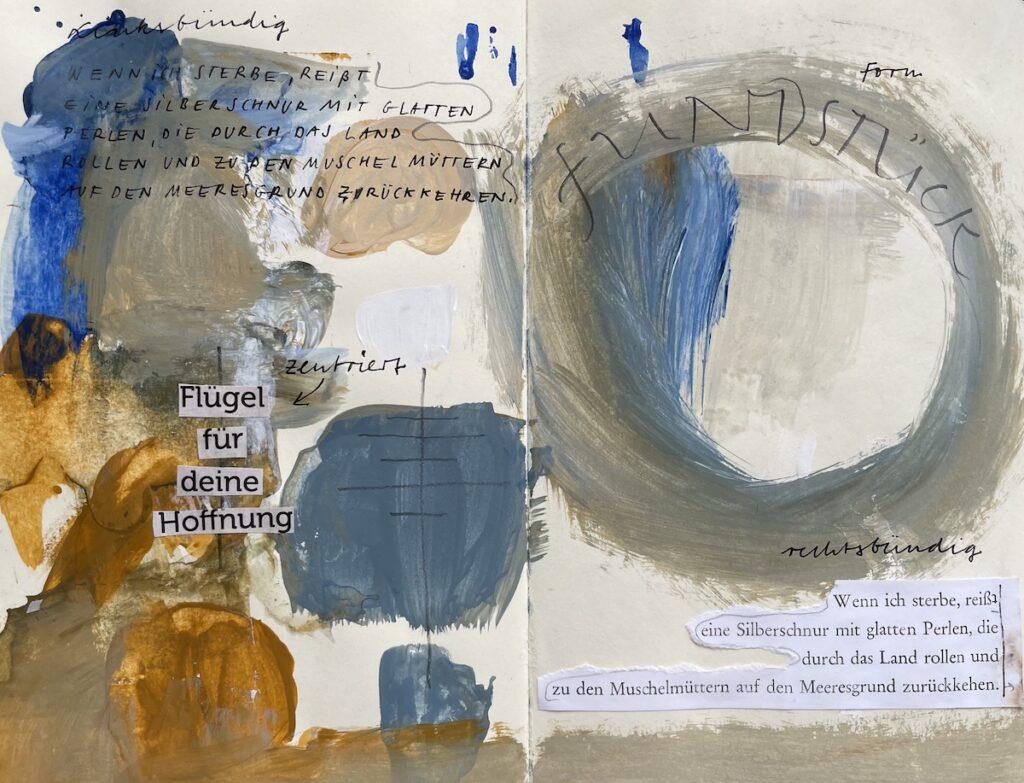 linksbündig
WENN ICH STERBE, REIẞT
EINE SILBERSCHNUR MIT GLATTEN
PERLEN, DIE DURCH DAS LAND
ROLLEN UND ZU DEN MUSCHELMÜTTERN
AUF DEN MEERESGRUND ZURÜCKKEHREN.
zentriert
Flügel
für
deine
Hoffnung
Form
FUNDSTÜCK
rechtsbündig
Wenn ich sterbe, reißt
eine Silberschnur mit glatten Perlen, die
durch das Land rollen und
zu den Muschelmüttern auf den Meeresgrund zurückkehen.